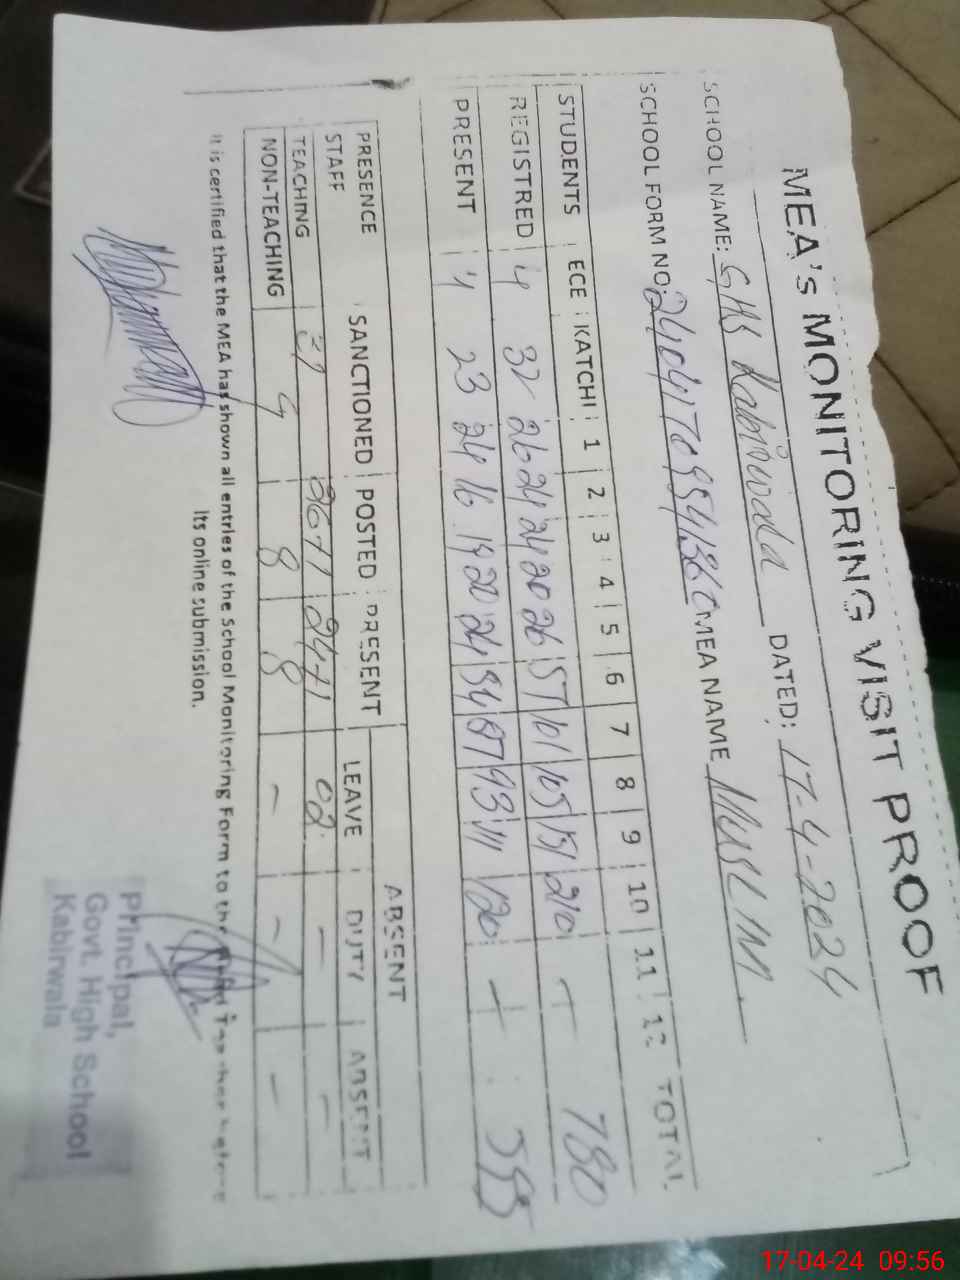 MEA's MONITORING VISIT PROOF
SCHOOL NAME: GHS Kabirwala DATED: 17-4-2024
SCHOOL FORM NO: MEA NAME MUSLIM
STUDENTS ECE KATCHI 1 2 3 4 5 6 7 8 9 10 11 12 TOTAL
REGISTRED 4 32 26 24 24 20 26 57 101 105 151 210 - 780
PRESENT 4 23 24 16 19 20 24 54 87 93 111 120 -
PRESENCE SANCTIONED POSTED PRESENT ABSENT
STAFF LEAVE DUTY ABSENT
TEACHING 31 26+1 24+1 02 - -
NON-TEACHING 9 8 8 - - -
It is certified that the MEA has shown all entries of the School Monitoring Form to the before
its online submission.
Principal,
Govt. High School
Kabirwala
17-04-24 09:56